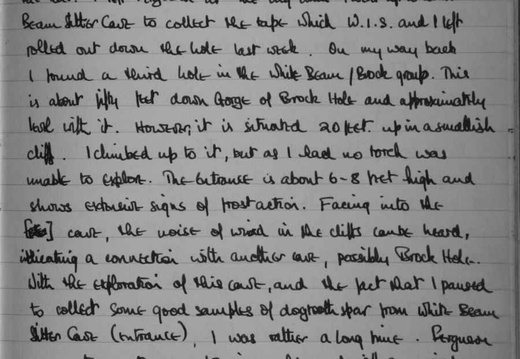 Beam Sitter Cave to collect the tape which W.I.S. and I left
rolled out down the hole last week. On my way back
I found a third hole in the White Beam / Brock group. This
is about fifty feet down Gorge of Brock Hole and approximately
level with it. However, it is situated 20 feet up in a smallish
cliff. I climbed up to it, but as I had no torch was
unable to explore. The Entrance is about 6-8 feet high and
shows extensive signs of frost action. Facing into the
cave, the noise of wind in the cliffs can be heard,
indicating a connection with another cave, possibly Brock Hole.
With the exploration of this cave, and the fact that I paused
to collect some good samples of dogtooth spar from White Beam
Sitter Cave (Entrance), I was rather a long time. Ferguson